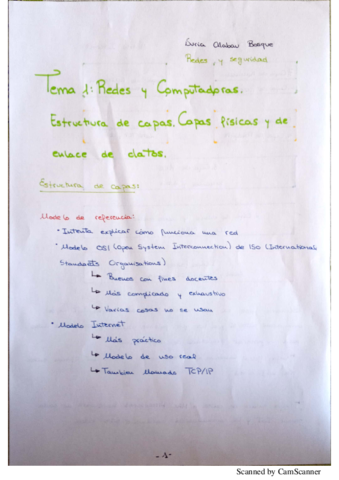 Olabau Bosque
Redes y seguridad
Tema 1: Redes y Computadoras.
Estructura de capas. Capas físicas y de
enlace de datos.
Estructura de capas:
Modelo de referencia:
• Intenta explicar cómo funciona una red
• Modelo OSI (Open System Interconnection) de ISO (International
Standards Organisations)
↳ Buenos con fines docentes
↳ Más complicado y exhaustivo
↳ Varias cosas no se usan
• Modelo Internet
↳ Más práctico
↳ Modelo de uso real
↳ También llamado TCP/IP
-1-
Scanned by CamScanner